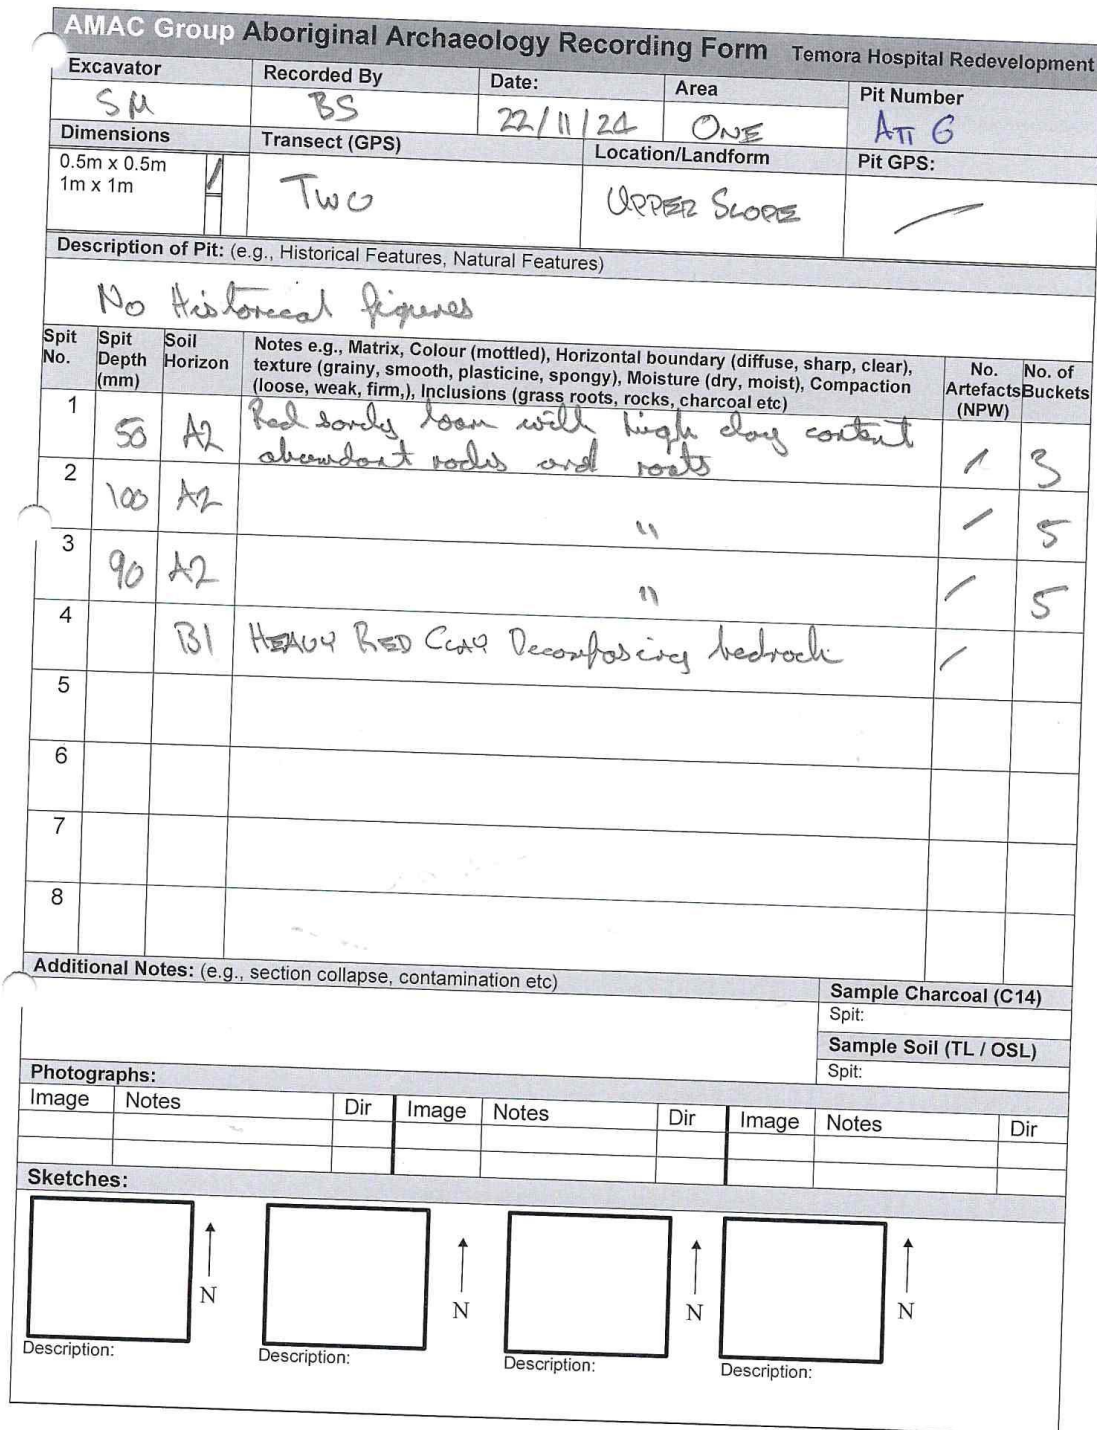 AMAC Group Aboriginal Archaeology Recording Form Temora Hospital Redevelopment
Excavator Recorded By Date: Area Pit Number
SM BS 22/11/24 ONE ATT 6
Dimensions Transect (GPS) Location/Landform Pit GPS:
0.5m x 0.5m /
1m x 1m
TWO UPPER SLOPE —
Description of Pit: (e.g., Historical Features, Natural Features)
No Historical figures
Spit No. Spit Depth (mm) Soil Horizon Notes e.g., Matrix, Colour (mottled), Horizontal boundary (diffuse, sharp, clear), texture (grainy, smooth, plasticine, spongy), Moisture (dry, moist), Compaction (loose, weak, firm,), Inclusions (grass roots, rocks, charcoal etc) No. Artefacts (NPW) No. of Buckets
1 50 A2 Red sandy loam with high clay content
abundant rocks and roots / 3
2 100 A2 " / 5
3 90 A2 " / 5
4 B1 HEAVY RED CLAY Decomposing bedrock /
5
6
7
8
Additional Notes: (e.g., section collapse, contamination etc)
Sample Charcoal (C14)
Spit:
Sample Soil (TL / OSL)
Spit:
Photographs:
Image Notes Dir Image Notes Dir Image Notes Dir
Sketches:
N N N N
Description: Description: Description: Description: